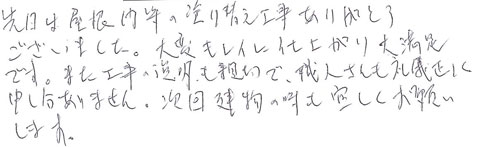 先日は屋根内等の塗り替え工事ありがとう
ございました。大変キレイに仕上がり大満足
です。また工事の説明も親切で、職人さんも礼儀正しく
申し分ありません。次回建物の時も宜しくお願い
します。